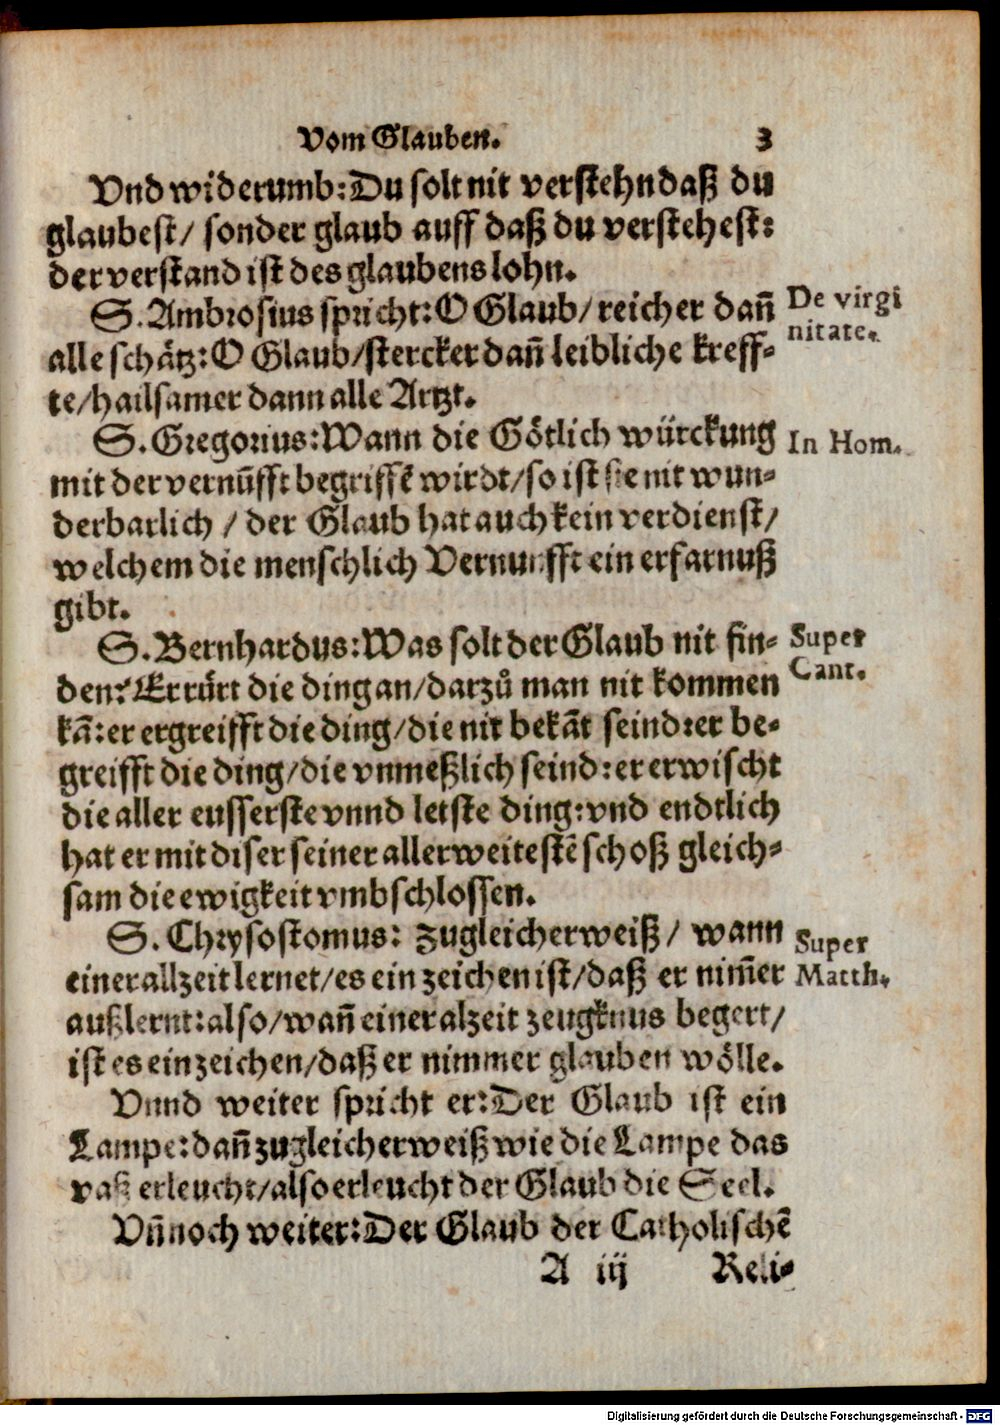 Vom Glauben. 3
Vnd widerumb: Du solt nit verstehn daß du
glaubest/ sonder glaub auff daß du verstehest:
der verstand ist des glaubens lohn.
S. Ambrosius spricht: O Glaub/ reicher dañ
De virgi
alle schätz: O Glaub/ stercker dañ leibliche kreff-
nitate.
te/ hailsamer dann alle Artzt.
S. Gregorius: Wann die Götlich würckung
In Hom.
mit der vernũfft begriffẽ wirdt/ so ist sie nit wun-
derbarlich / der Glaub hat auch kein verdienst/
welchem die menschlich Vernunfft ein erfarnuß
gibt.
S. Bernhardus: Was solt der Glaub nit fin-
Super
den? Er rürt die ding an/ darzů man nit kommen
Cant.
kã: er ergreifft die ding/ die nit bekãt seind: er be-
greifft die ding/ die vnmeßlich seind: er erwischt
die aller eusserste vnnd letste ding: vnd endtlich
hat er mit diser seiner allerweitestẽ schoß gleich-
sam die ewigkeit vmbschlossen.
S. Chrysostomus: Zugleicherweiß/ wann
Super
einer allzeit lernet/ es ein zeichen ist/ daß er nim̃er
Matth.
außlernt: also/ wañ einer alzeit zeugknus begert/
ist es ein zeichen/ daß er nimmer glauben wölle.
Vnnd weiter spricht er: Der Glaub ist ein
Lampe: dañ zugleicherweiß wie die Lampe das
vaß erleucht/ also erleucht der Glaub die Seel.
Vñ noch weiter: Der Glaub der Catholischẽ
A iij Reli-
Digitalisierung gefördert durch die Deutsche Forschungsgemeinschaft - DFG